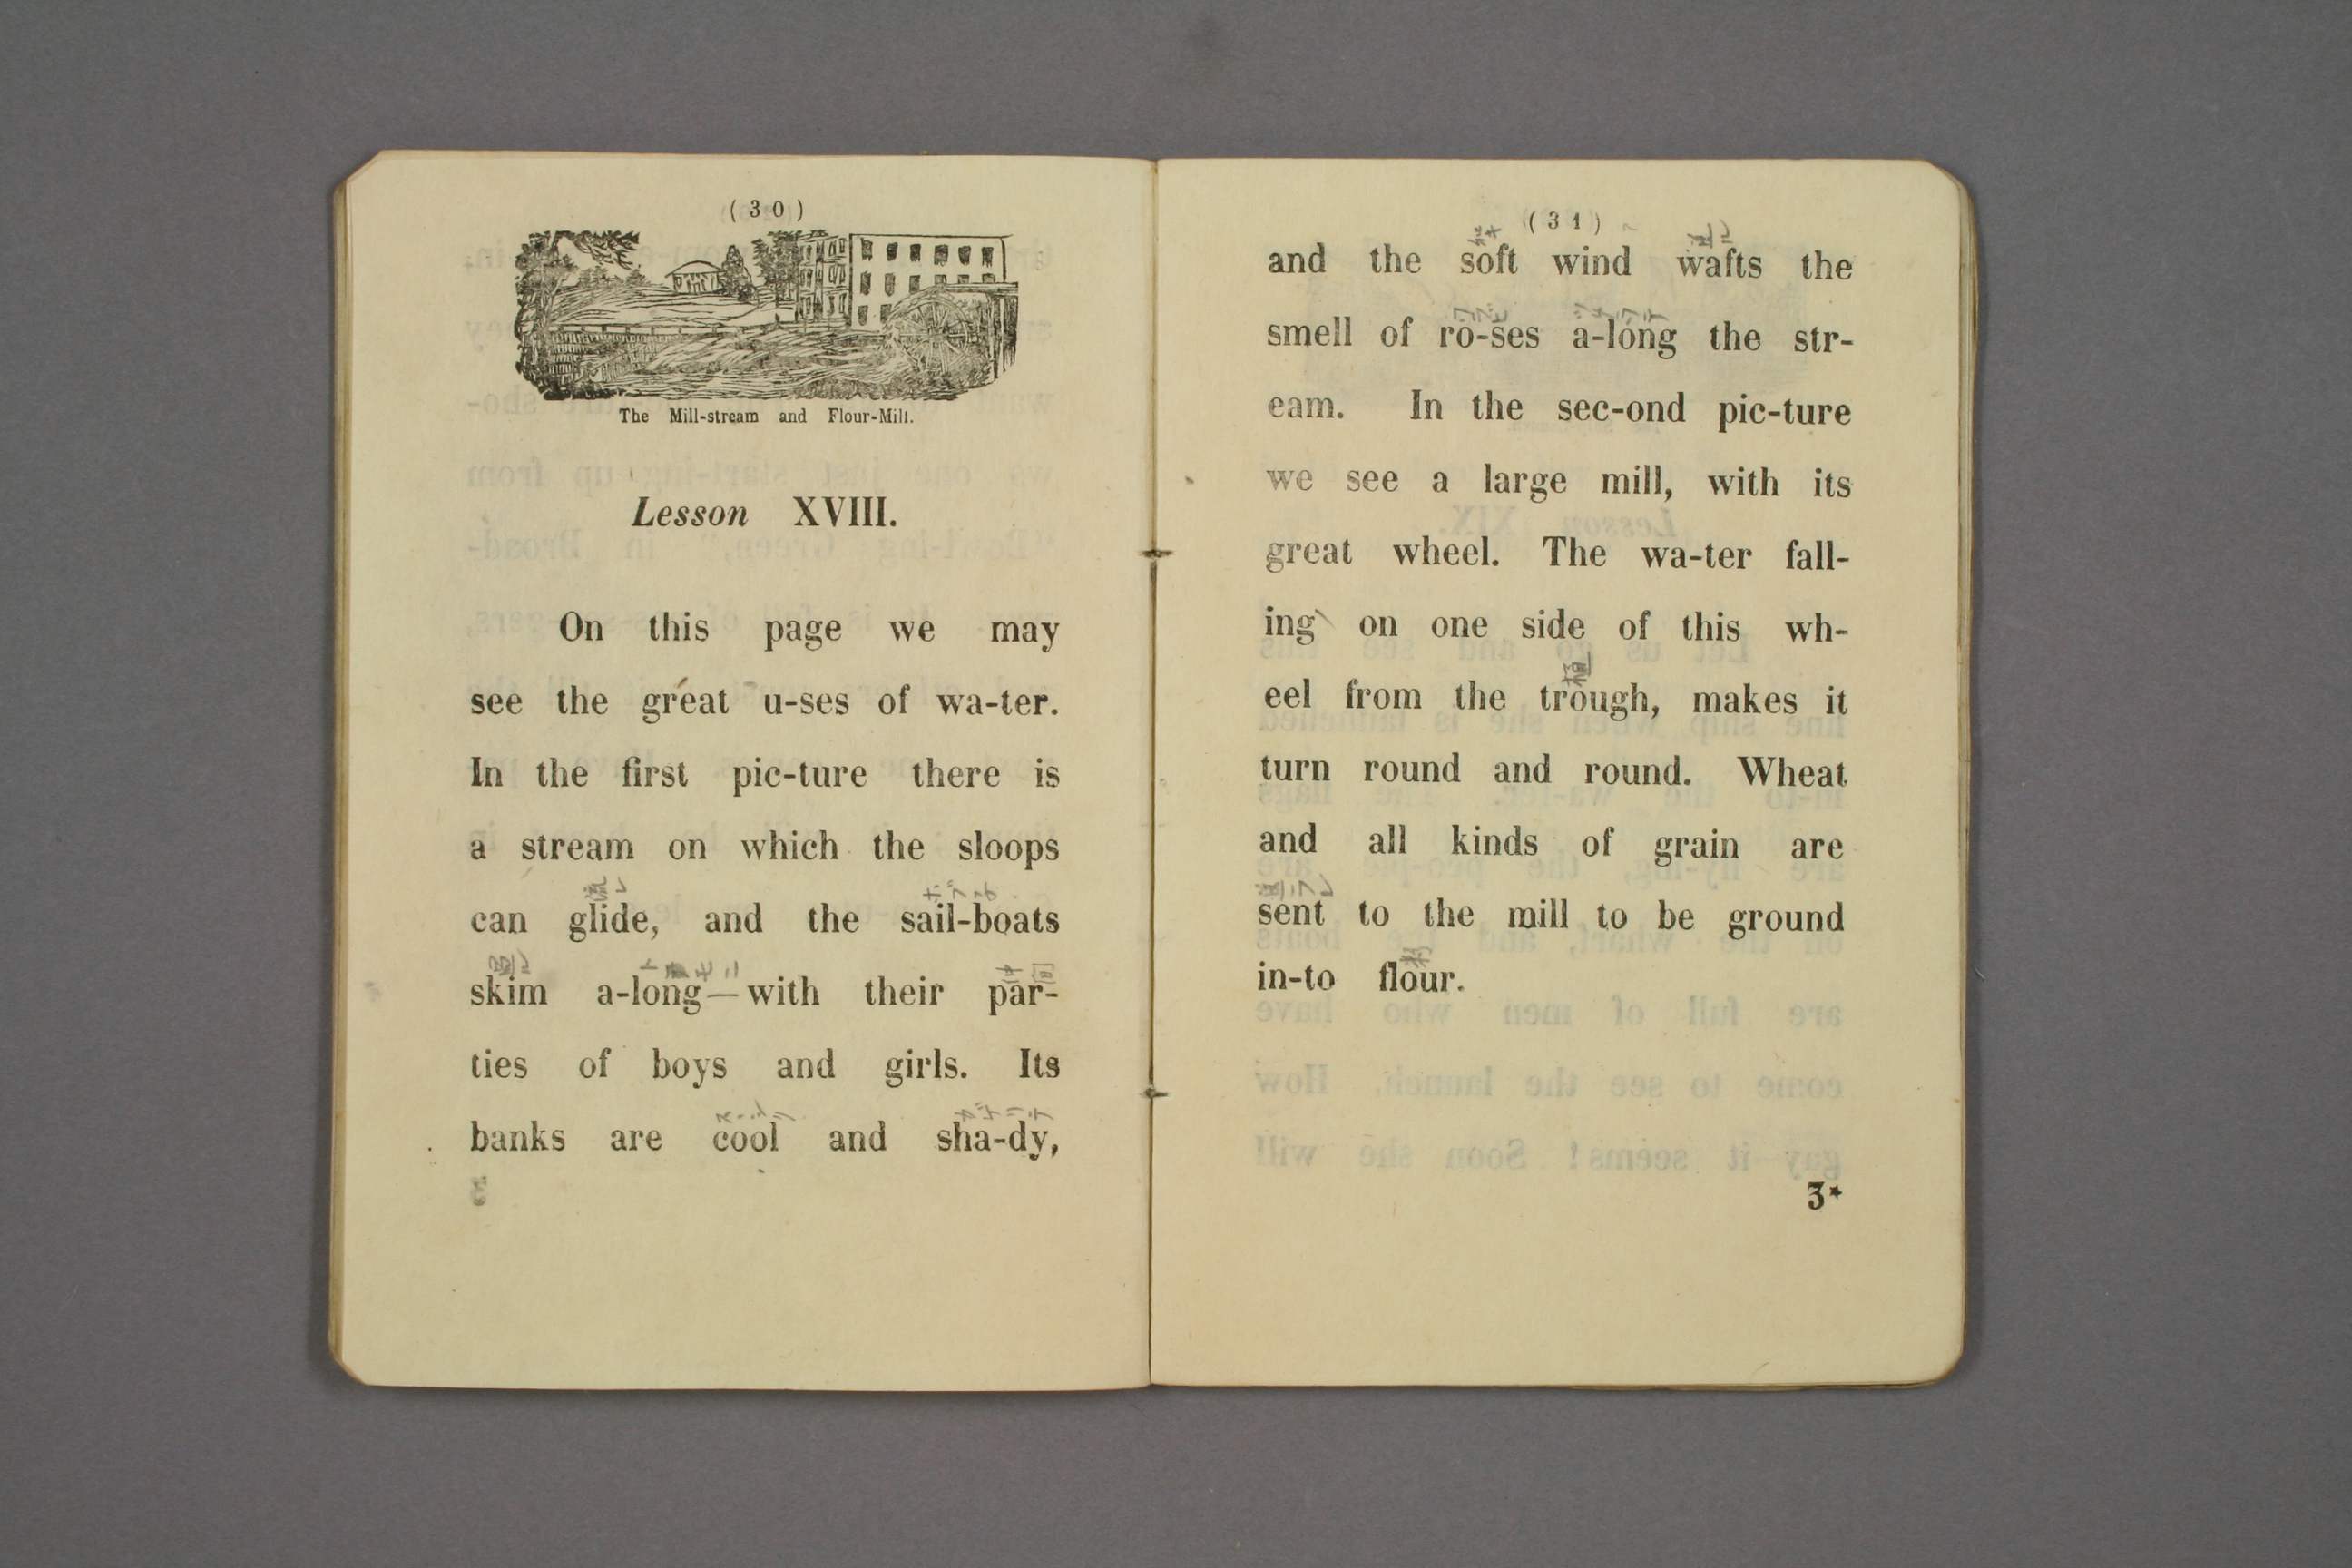 ( 3 0 )
The Mill-stream and Flour-Mill.
Lesson XVIII.
On this page we may
see the great u-ses of wa-ter.
In the first pic-ture there is
a stream on which the sloops
can glide, and the sail-boats
skim a-long—with their par-
ties of boys and girls. Its
banks are cool and sha-dy,
( 3 1 )
and the soft wind wafts the
smell of ro-ses a-long the str-
eam. In the sec-ond pic-ture
we see a large mill, with its
great wheel. The wa-ter fall-
ing on one side of this wh-
eel from the trough, makes it
turn round and round. Wheat
and all kinds of grain are
sent to the mill to be ground
in-to flour.
3*